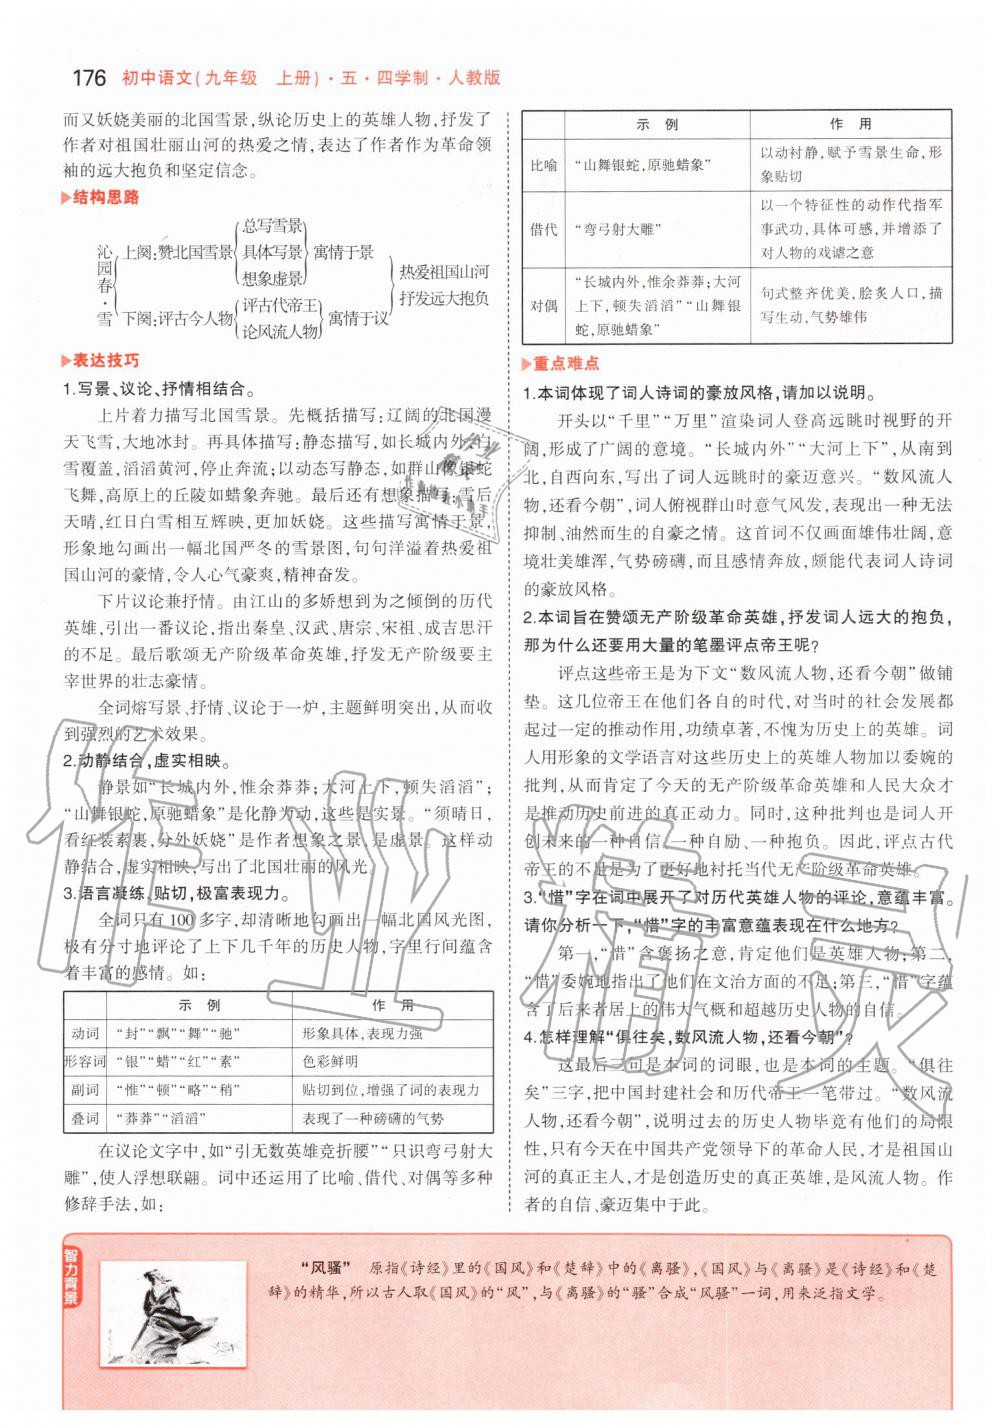 176 初中语文(九年级 上册)·五·四学制·人教版
而又妖娆美丽的北国雪景,纵论历史上的英雄人物,抒发了
作者对祖国壮丽山河的热爱之情,表达了作者作为革命领
袖的远大抱负和坚定信念。
结构思路
沁园春·雪
上阕:赞北国雪景
总写雪景
具体写景
想象虚景
寓情于景
下阕:评古今人物
评古代帝王
论风流人物
寓情于议
热爱祖国山河
抒发远大抱负
表达技巧
1.写景、议论、抒情相结合。
上片着力描写北国雪景。先概括描写:辽阔的北国漫
天飞雪,大地冰封。再具体描写:静态描写,如长城内外,白
雪覆盖,滔滔黄河,停止奔流;以动态写静态,如群山像银蛇
飞舞,高原上的丘陵如蜡象奔驰。最后还有想象描写:雪后
天晴,红日白雪相互辉映,更加妖娆。这些描写寓情于景,
形象地勾画出一幅北国严冬的雪景图,句句洋溢着热爱祖
国山河的豪情,令人心气豪爽,精神奋发。
下片议论兼抒情。由江山的多娇想到为之倾倒的历代
英雄,引出一番议论,指出秦皇、汉武、唐宗、宋祖、成吉思汗
的不足。最后歌颂无产阶级革命英雄,抒发无产阶级要主
宰世界的壮志豪情。
全词熔写景、抒情、议论于一炉,主题鲜明突出,从而收
到强烈的艺术效果。
2.动静结合,虚实相映。
静景如“长城内外,惟余莽莽;大河上下,顿失滔滔”;
“山舞银蛇,原驰蜡象”是化静为动,这些是实景。“须晴日,
看红装素裹,分外妖娆”是作者想象之景,是虚景。这样动
静结合,虚实相映,写出了北国壮丽的风光。
3.语言凝练,贴切,极富表现力。
全词只有100多字,却清晰地勾画出一幅北国风光图,
极有分寸地评论了上下几千年的历史人物,字里行间蕴含
着丰富的感情。如:
示 例 作 用
动词 “封”“飘”“舞”“驰” 形象具体,表现力强
形容词 “银”“蜡”“红”“素” 色彩鲜明
副词 “惟”“顿”“略”“稍” 贴切到位,增强了词的表现力
叠词 “莽莽”“滔滔” 表现了一种磅礴的气势
在议论文字中,如“引无数英雄竞折腰”“只识弯弓射大
雕”,使人浮想联翩。词中还运用了比喻、借代、对偶等多种
修辞手法,如:
示 例 作 用
比喻 “山舞银蛇,原驰蜡象” 以动衬静,赋予雪景生命,形
象贴切
借代 “弯弓射大雕” 以一个特征性的动作代指军
事武功,具体可感,并增添了
对人物的戏谑之意
对偶 “长城内外,惟余莽莽;大河
上下,顿失滔滔”“山舞银
蛇,原驰蜡象” 句式整齐优美,脍炙人口,描
写生动,气势雄伟
重点难点
1.本词体现了词人诗词的豪放风格,请加以说明。
开头以“千里”“万里”渲染词人登高远眺时视野的开
阔,形成了广阔的意境。“长城内外”“大河上下”,从南到
北,自西向东,写出了词人远眺时的豪迈意兴。“数风流人
物,还看今朝”,词人俯视群山时意气风发,表现出一种无法
抑制、油然而生的自豪之情。这首词不仅画面雄伟壮阔,意
境壮美雄浑,气势磅礴,而且感情奔放,颇能代表词人诗词
的豪放风格。
2.本词旨在赞颂无产阶级革命英雄,抒发词人远大的抱负,
那为什么还要用大量的笔墨评点帝王呢?
评点这些帝王是为下文“数风流人物,还看今朝”做铺
垫。这几位帝王在他们各自的时代,对当时的社会发展都
起过一定的推动作用,功绩卓著,不愧为历史上的英雄。词
人用形象的文学语言对这些历史上的英雄人物加以委婉的
批判,从而肯定了今天的无产阶级革命英雄和人民大众才
是推动历史前进的真正动力。同时,这种批判也是词人开
创未来的一种自信、一种自励、一种抱负。因此,评点古代
帝王的不足是为了更好地衬托当代无产阶级革命英雄。
3.“惜”字在词中展开了对历代英雄人物的评论,意蕴丰富。
请你分析一下,“惜”字的丰富意蕴表现在什么地方?
第一,“惜”含褒扬之意,肯定他们是英雄人物;第二,
“惜”委婉地指出了他们在文治方面的不足;第三,“惜”字蕴
含了后来者居上的伟大气概和超越历史人物的自信。
4.怎样理解“俱往矣,数风流人物,还看今朝”?
这最后三句是本词的词眼,也是本词的主题。“俱往
矣”三字,把中国封建社会和历代帝王一笔带过。“数风流
人物,还看今朝”,说明过去的历史人物毕竟有他们的局限
性,只有今天在中国共产党领导下的革命人民,才是祖国山
河的真正主人,才是创造历史的真正英雄,是风流人物。作
者的自信、豪迈集中于此。
智力背景
“风骚” 原指《诗经》里的《国风》和《楚辞》中的《离骚》,《国风》与《离骚》是《诗经》和《楚
辞》的精华,所以古人取《国风》的“风”,与《离骚》的“骚”合成“风骚”一词,用来泛指文学。
作业精灵